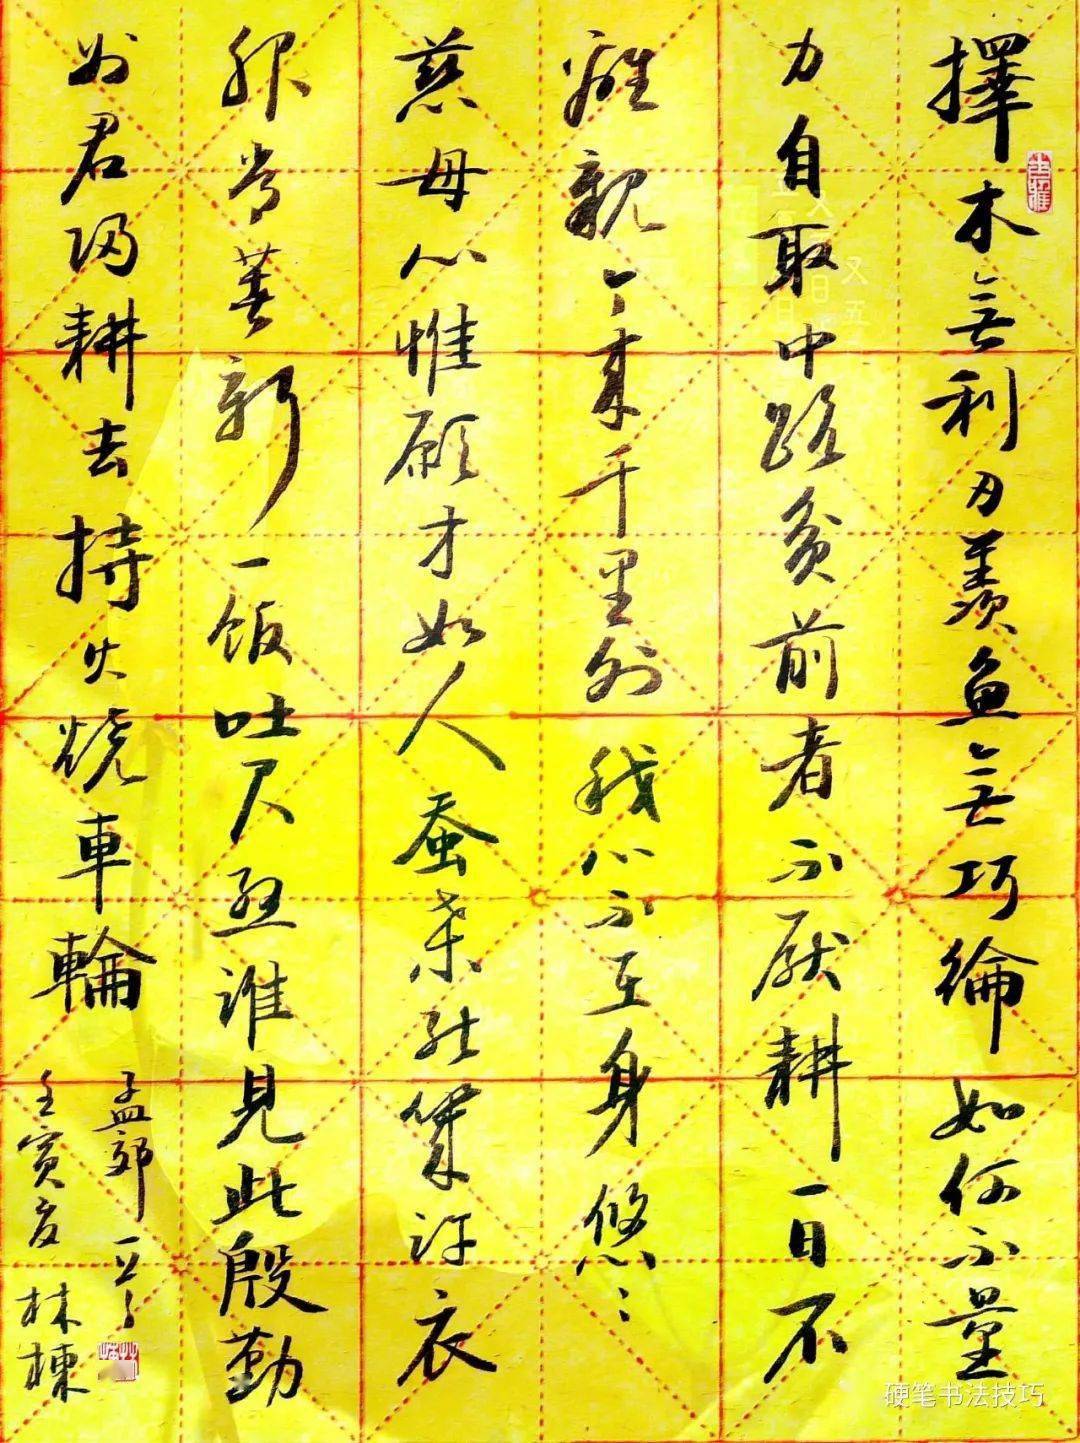 擇木無利刃羨魚無巧綸如何不量
力自取中路貧前者不厭耕一日不
離親今來千里外我心不在身悠悠
慈母心惟願才如人蚕桑能幾許衣
服常著新一飯吐尺絲誰見此殷勤
別君歸耕去持火燒車輪
孟郊
壬寅夏林棟
硬笔书法技巧